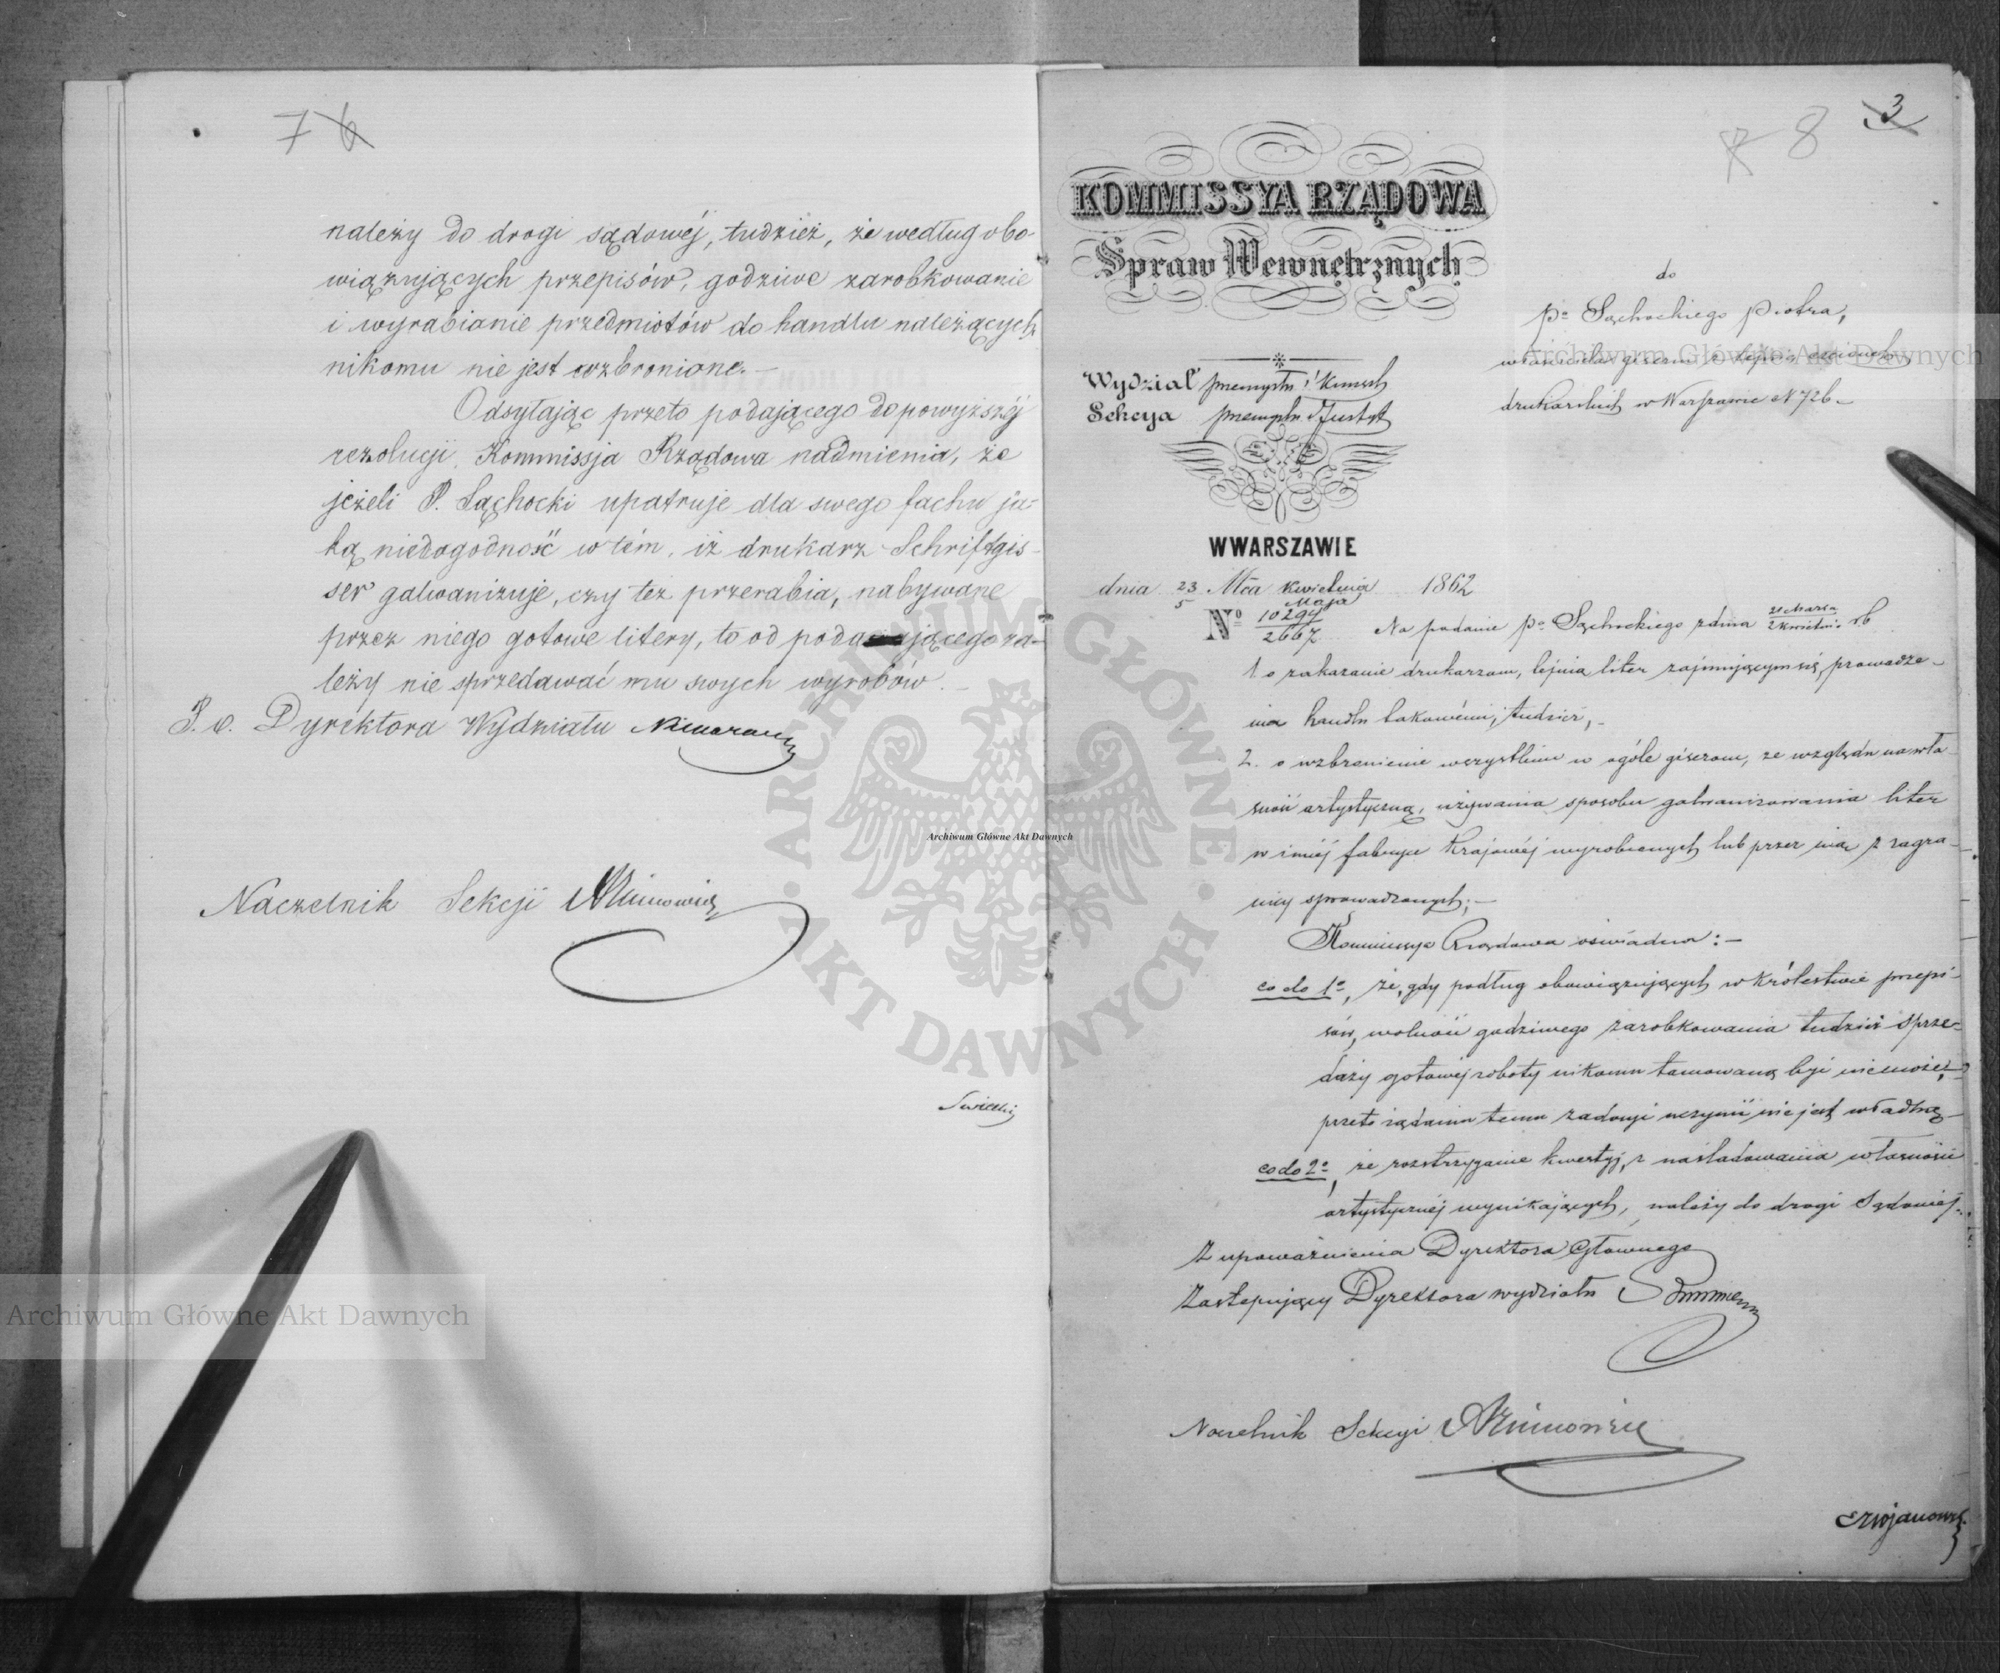 7 6
należy do drogi sądowéj, tudzież, że według obo-
wiązujących przepisów, godziwe zarobkowanie
i wyrabianie przedmiotów do handlu należących
nikomu nie jest wzbronione.—
Odsyłając przeto podającego do powyższéj
rezolucji, Kommissja Rządowa nadmienia, że
jeżeli P. Sąchocki upatruje dla swego fachu ja-
ką niedogodność w tém, iż drukarz Schriftgis-
ser galwanizuje, czy też przerabia, nabywane
przez niego gotowe litery, to od podającego za-
leży nie sprzedawać mu swych wyrobów.—
P. o. Dyrektora Wydziału
Naczelnik Sekcji
3
8
KOMMISSYA RZĄDOWA
Spraw Wewnętrznych
do
Po Sąchockiego Piotra,
drukarskich w Warszawie N 726.—
Wydział Przemysłu i Kunszt
Sekcya Przemysłu
W WARSZAWIE
dnia 23/5 Mca Kwietnia/Maja 1862
No 10294/2667
Na podanie Po Sąchockiego z dnia 21 Marca/2 Kwietnia rb
1 o zakazanie drukarzom, lejnią liter zajmującym się, prowadze-
nia handlu takowémi, tudzież,—
2. o wzbronienie wszystkim w ogóle giserom, ze względu na wła-
sność artystyczną, używania sposobu galwanizowania liter
w innéj fabryce Krajowéj wyrobionych lub przez nią z zagra-
nicy sprowadzonych;—
Kommissya Rządowa oświadcza:—
co do 1o, że, gdy podług obowiązujących w Królestwie przepi-
sów, wolność godziwego zarobkowania tudzież sprze-
daży gotowej roboty nikomu tamowaną być nie może,
przeto żądaniu temu zadosyć uczynić nie jest władną—
co do 2o, że rozstrzyganie kwestyj, z naśladowania własności
artystycznéj wynikających, należy do drogi Sądowéj.
Z upoważnienia Dyrektora Głównego
Zastępujący Dyrektora wydziału
Naczelnik Sekcyi
Archiwum Główne Akt Dawnych
Archiwum Główne Akt Dawnych
Archiwum Główne Akt Dawnych
ARCHIWUM GŁÓWNE · AKT DAWNYCH ·